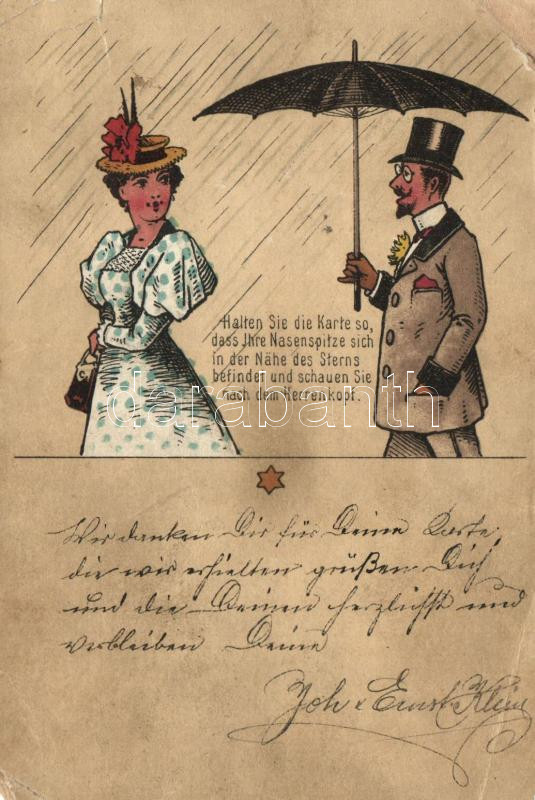 Halten Sie die Karte so,
dass Ihre Nasenspitze sich
in der Nähe des Sterns
befindet und schauen Sie
nach dem Herrenkopf.
darabanth
Wir danken Dir für Deine Karte,
die wir erhielten grüßen Dich
und die Deinen herzlichst und
verbleiben Deine
Joh & Ernst Klein